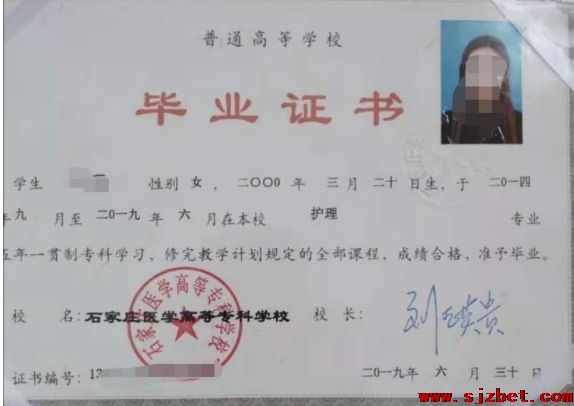 普通高等学校
毕业证书
学生 性别 女，二〇〇〇年 三月二十日生，于 二〇一四
年九月至二〇一九年六月在本校 护理 专业
五年一贯制专科学习，修完教学计划规定的全部课程，成绩合格，准予毕业。
校 名：石家庄医学高等专科学校 校 长：
石家庄医学高等专科学校
证书编号：13
二〇一九年 六 月 三十日
www.sjzbet.com